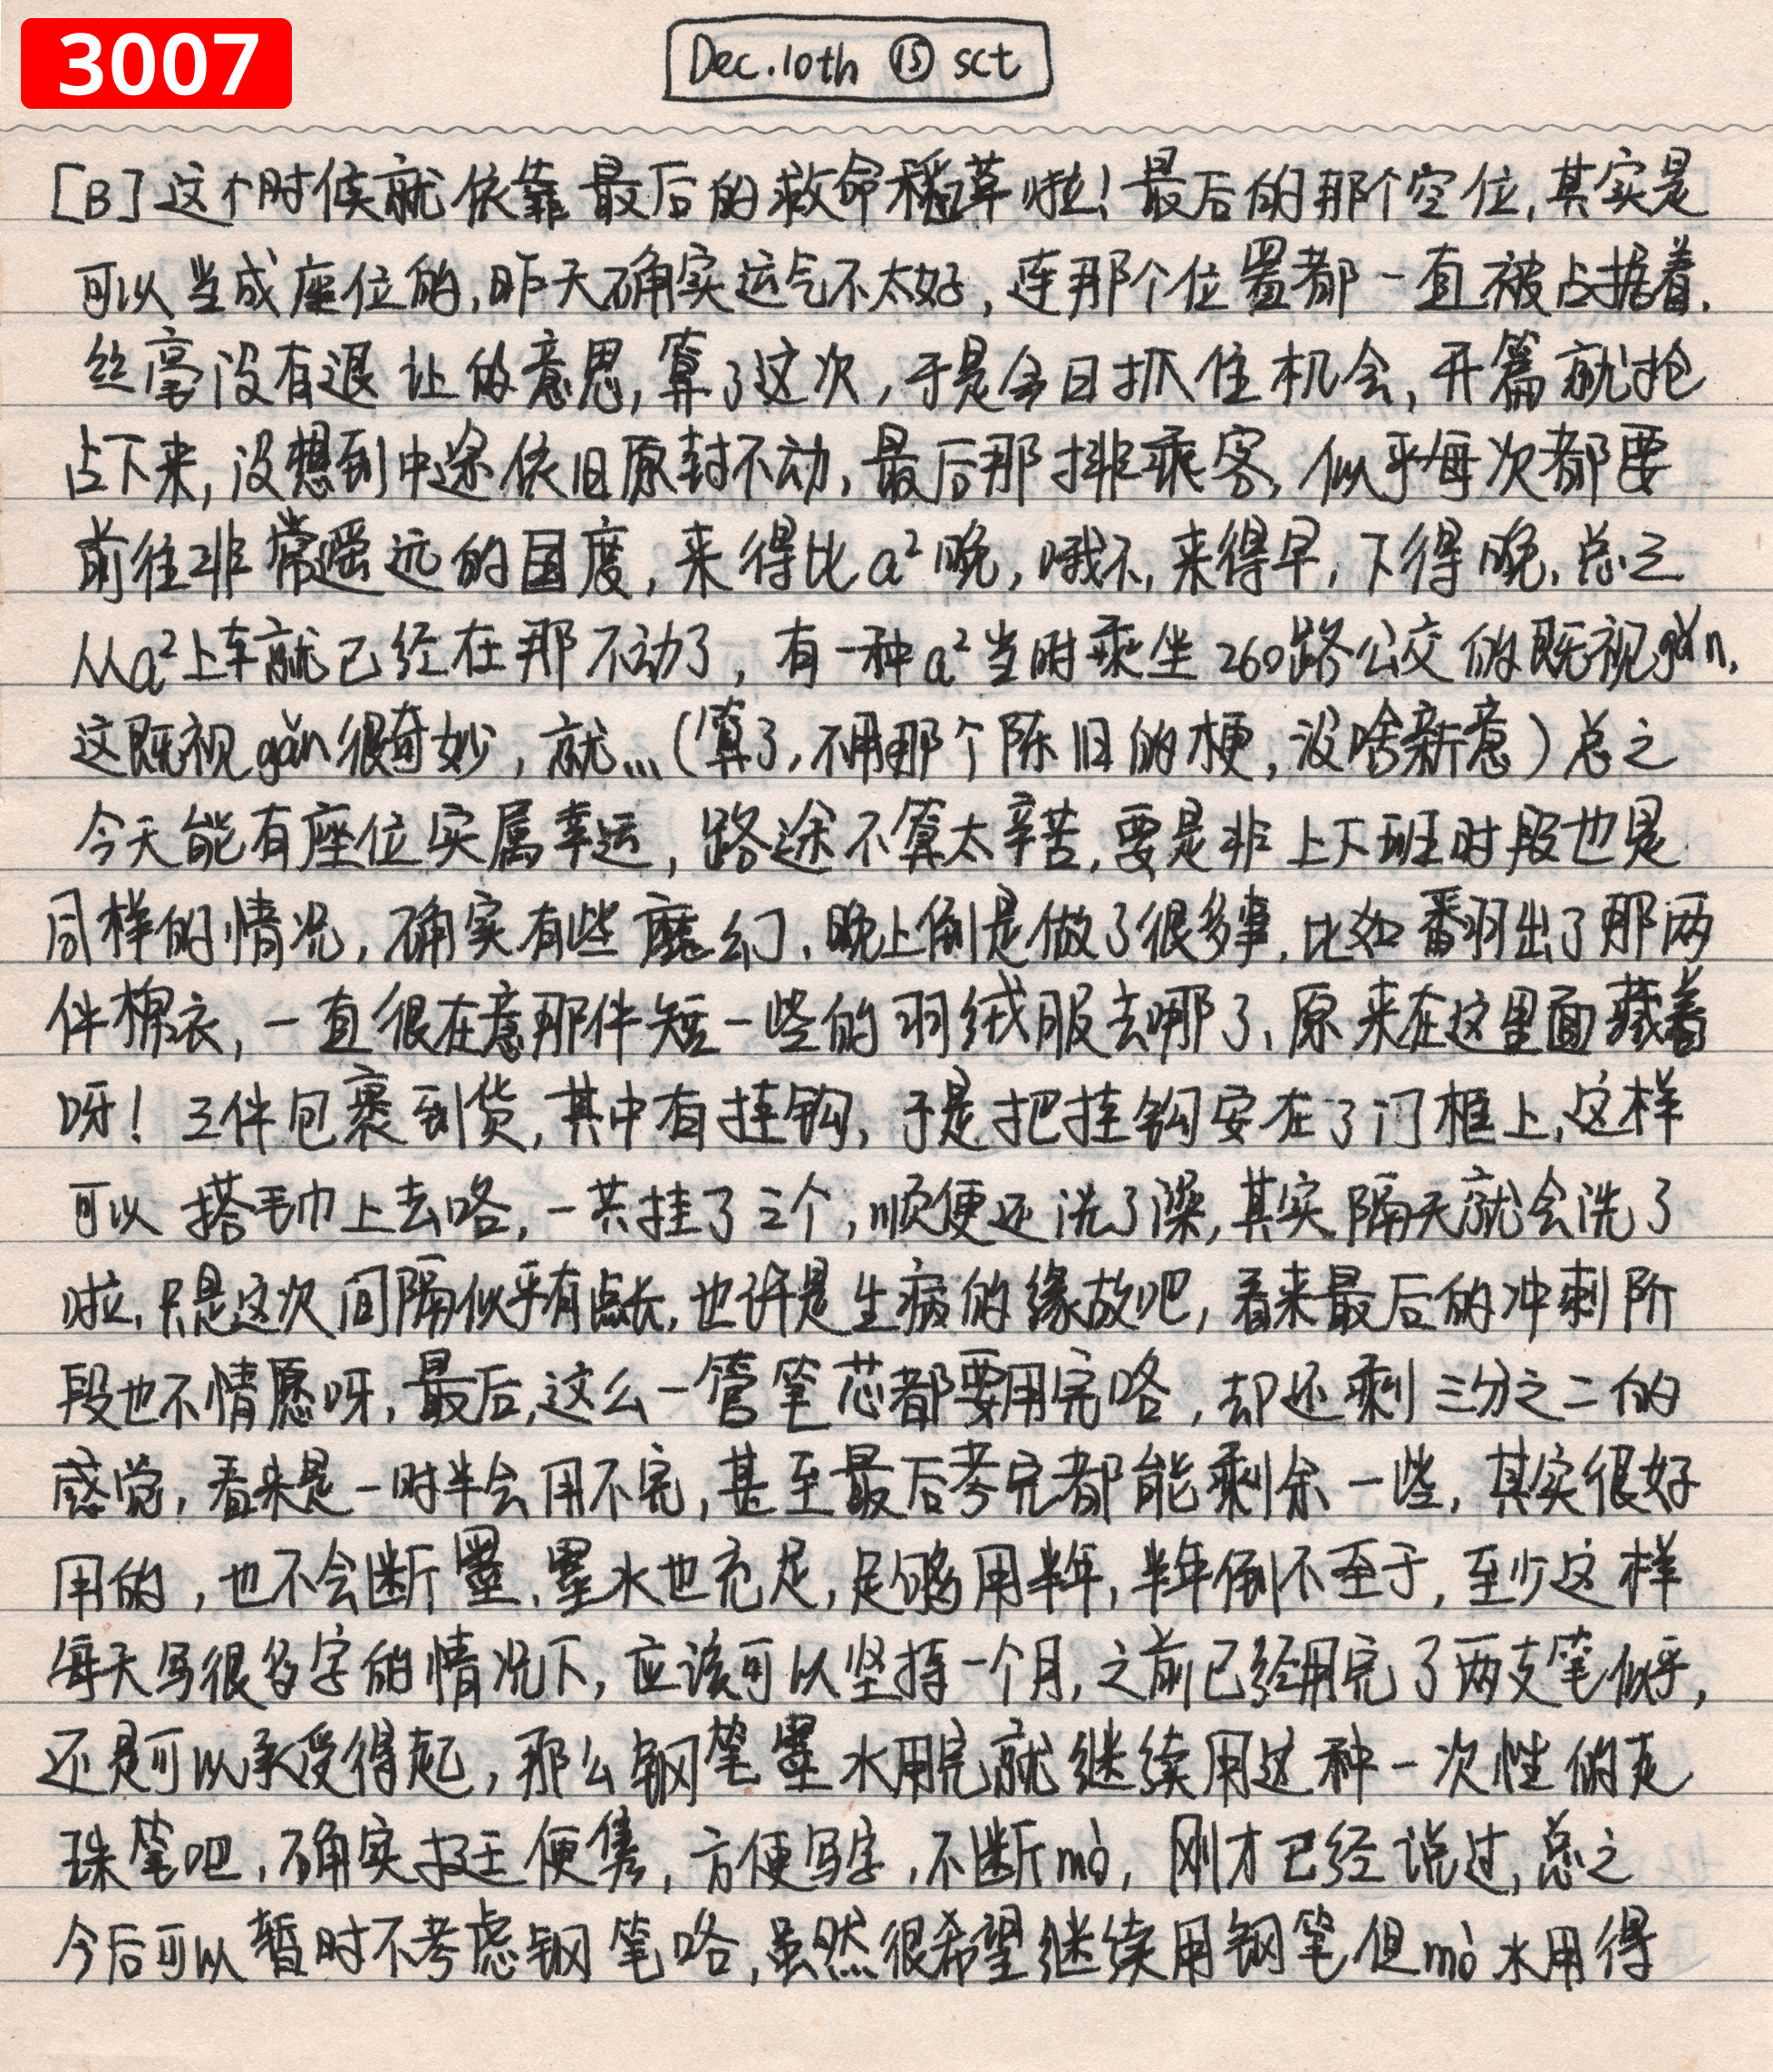 3007
Dec.10th ⑮ sct
[B]这个时候就依靠最后的救命稻草啦!最后的那个空位,其实是
可以当成座位的,昨天确实运气不太好,连那个位置都一直被占据着.
丝毫没有退让的意思,算了这次,于是今日抓住机会,开篇就抢
占下来,没想到中途依旧原封不动,最后那排乘客,似乎每次都要
前往非常遥远的国度,来得比a²晚,哦不,来得早,下得晚.总之
从a²上车就已经在那不动了,有一种a²当时乘坐260路公交的既视gǎn,
这既视gǎn很奇妙,就…(算了,不用那个陈旧的梗,没啥新意)总之
今天能有座位实属幸运,路途不算太辛苦,要是非上下班时段也是
同样的情况,确实有些魔幻,晚上倒是做了很多事,比如翻出了那两
件棉衣,一直很在意那件短一些的羽绒服去哪了,原来在这里面藏着
呀!三件包裹到货,其中有挂钩,于是把挂钩安在了门框上,这样
可以搭毛巾上去咯,一共挂了三个,顺便还洗了澡,其实隔天就会洗了
啦,只是这次间隔似乎有点长,也许是生病的缘故吧,看来最后的冲刺阶
段也不情愿呀,最后,这么一管笔芯都要用完咯,却还剩三分之二的
感觉,看来是一时半会用不完,甚至最后考完都能剩余一些,其实很好
用的,也不会断墨,墨水也充足,足够用半年,半年倒不至于,至少这样
每天写很多字的情况下,应该可以坚持一个月,之前已经用完了两支笔似乎,
还是可以承受得起,那么钢笔墨水用完就继续用这种一次性的走
珠笔吧,确实挺便隽,方便写字,不断mò,刚才已经说过,总之
今后可以暂时不考虑钢笔咯,虽然很希望继续用钢笔,但mò水用得